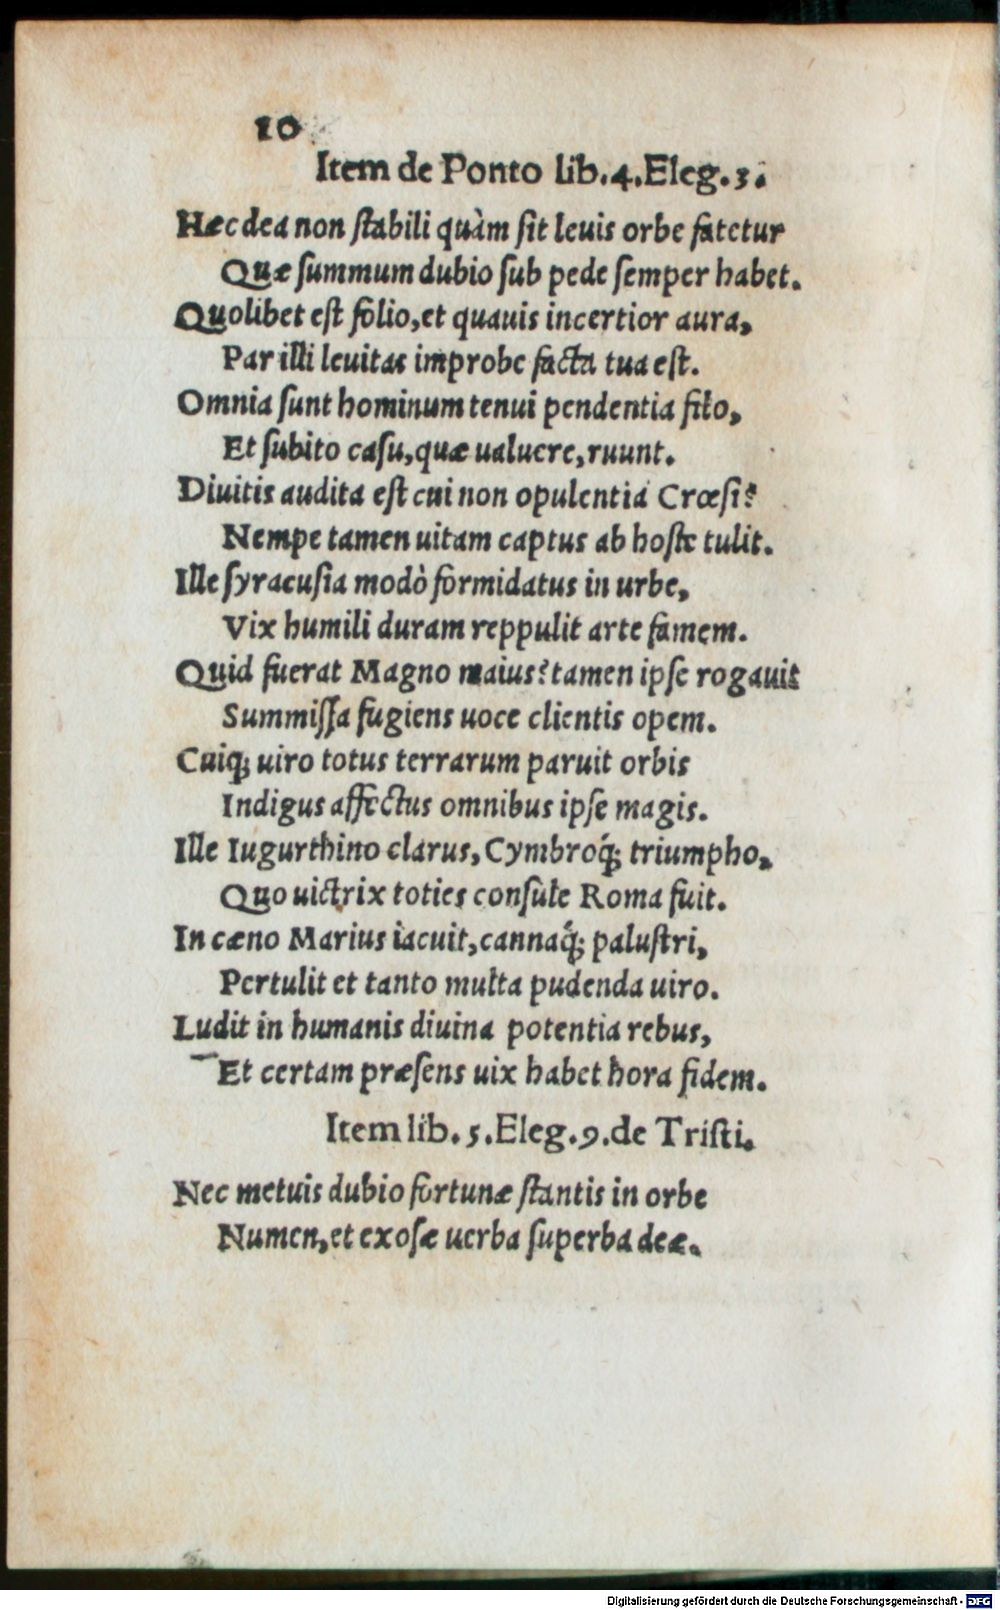 10
Item de Ponto lib.4.Eleg.3.
Hæc dea non ſtabili quàm ſit leuis orbe fatetur
Quæ ſummum dubio ſub pede ſemper habet.
Quolibet eſt folio, et quauis incertior aura,
Par illi leuitas improbe facta tua eſt.
Omnia ſunt hominum tenui pendentia filo,
Et ſubito caſu, quæ ualuere, ruunt.
Diuitis audita eſt cui non opulentia Crœſi?
Nempe tamen uitam captus ab hoſte tulit.
Ille ſyracuſia modò formidatus in urbe,
Vix humili duram reppulit arte famem.
Quid fuerat Magno maius? tamen ipſe rogauit
Summiſſa fugiens uoce clientis opem.
Cuiq; uiro totus terrarum paruit orbis
Indigus affectus omnibus ipſe magis.
Ille Iugurthino clarus, Cymbroq́; triumpho,
Quo uictrix toties conſule Roma fuit.
In cæno Marius iacuit, cannaq́; paluſtri,
Pertulit et tanto multa pudenda uiro.
Ludit in humanis diuina potentia rebus,
Et certam præſens uix habet hora fidem.
Item lib.5.Eleg.9.de Triſti.
Nec metuis dubio fortunæ ſtantis in orbe
Numen, et exoſæ uerba ſuperba deæ.
Digitalisierung gefördert durch die Deutsche Forschungsgemeinschaft - DFG